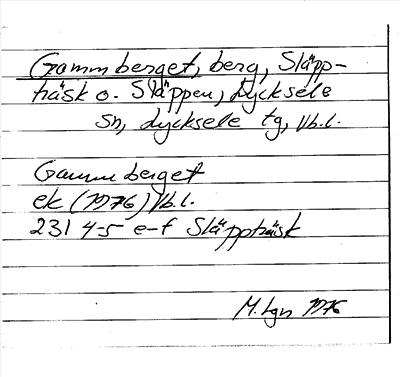 Gammberget, berg, Släpp-
träsk o. Släppen, Lycksele
sn, Lycksele tg, Vb.l.
Gammberget
ek (1976) Vb.l.
231 4-5 e-f Släppträsk
M.Lgn 1976